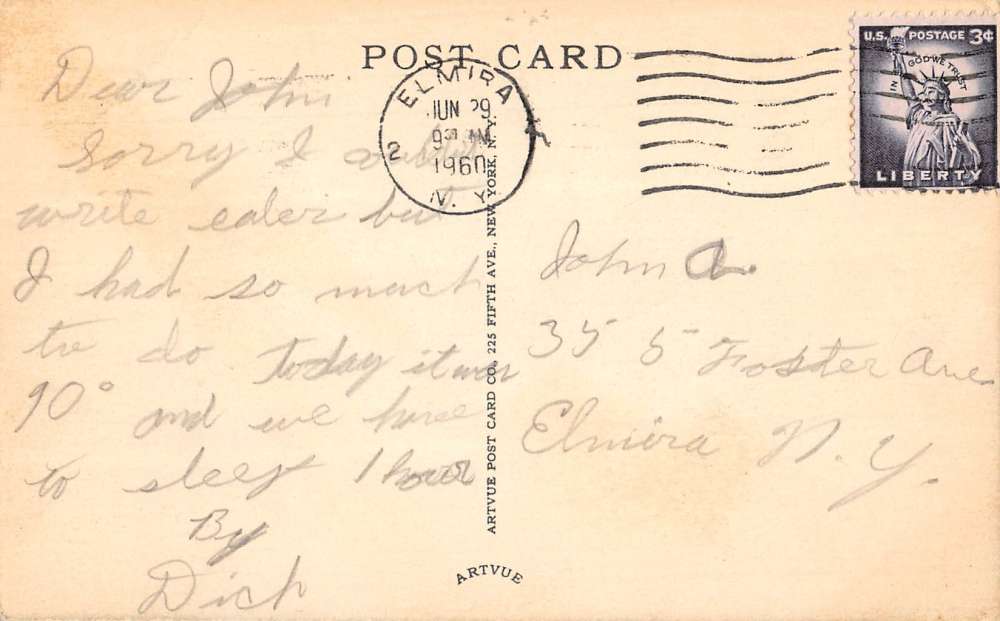 POST CARD
U.S. POSTAGE 3¢
IN GOD WE TRUST
LIBERTY
ELMIRA
JUN 29
1960
2
N. Y.
Dear John
Sorry I
write ealer but
I had so much
to do. today it was
90° and we have
to sleep 1 hour
By
Dick
John A.
35 5 Foster Ave
Elmira N. Y.
ARTVUE POST CARD CO., 225 FIFTH AVE., NEW YORK, N.Y.
ARTVUE